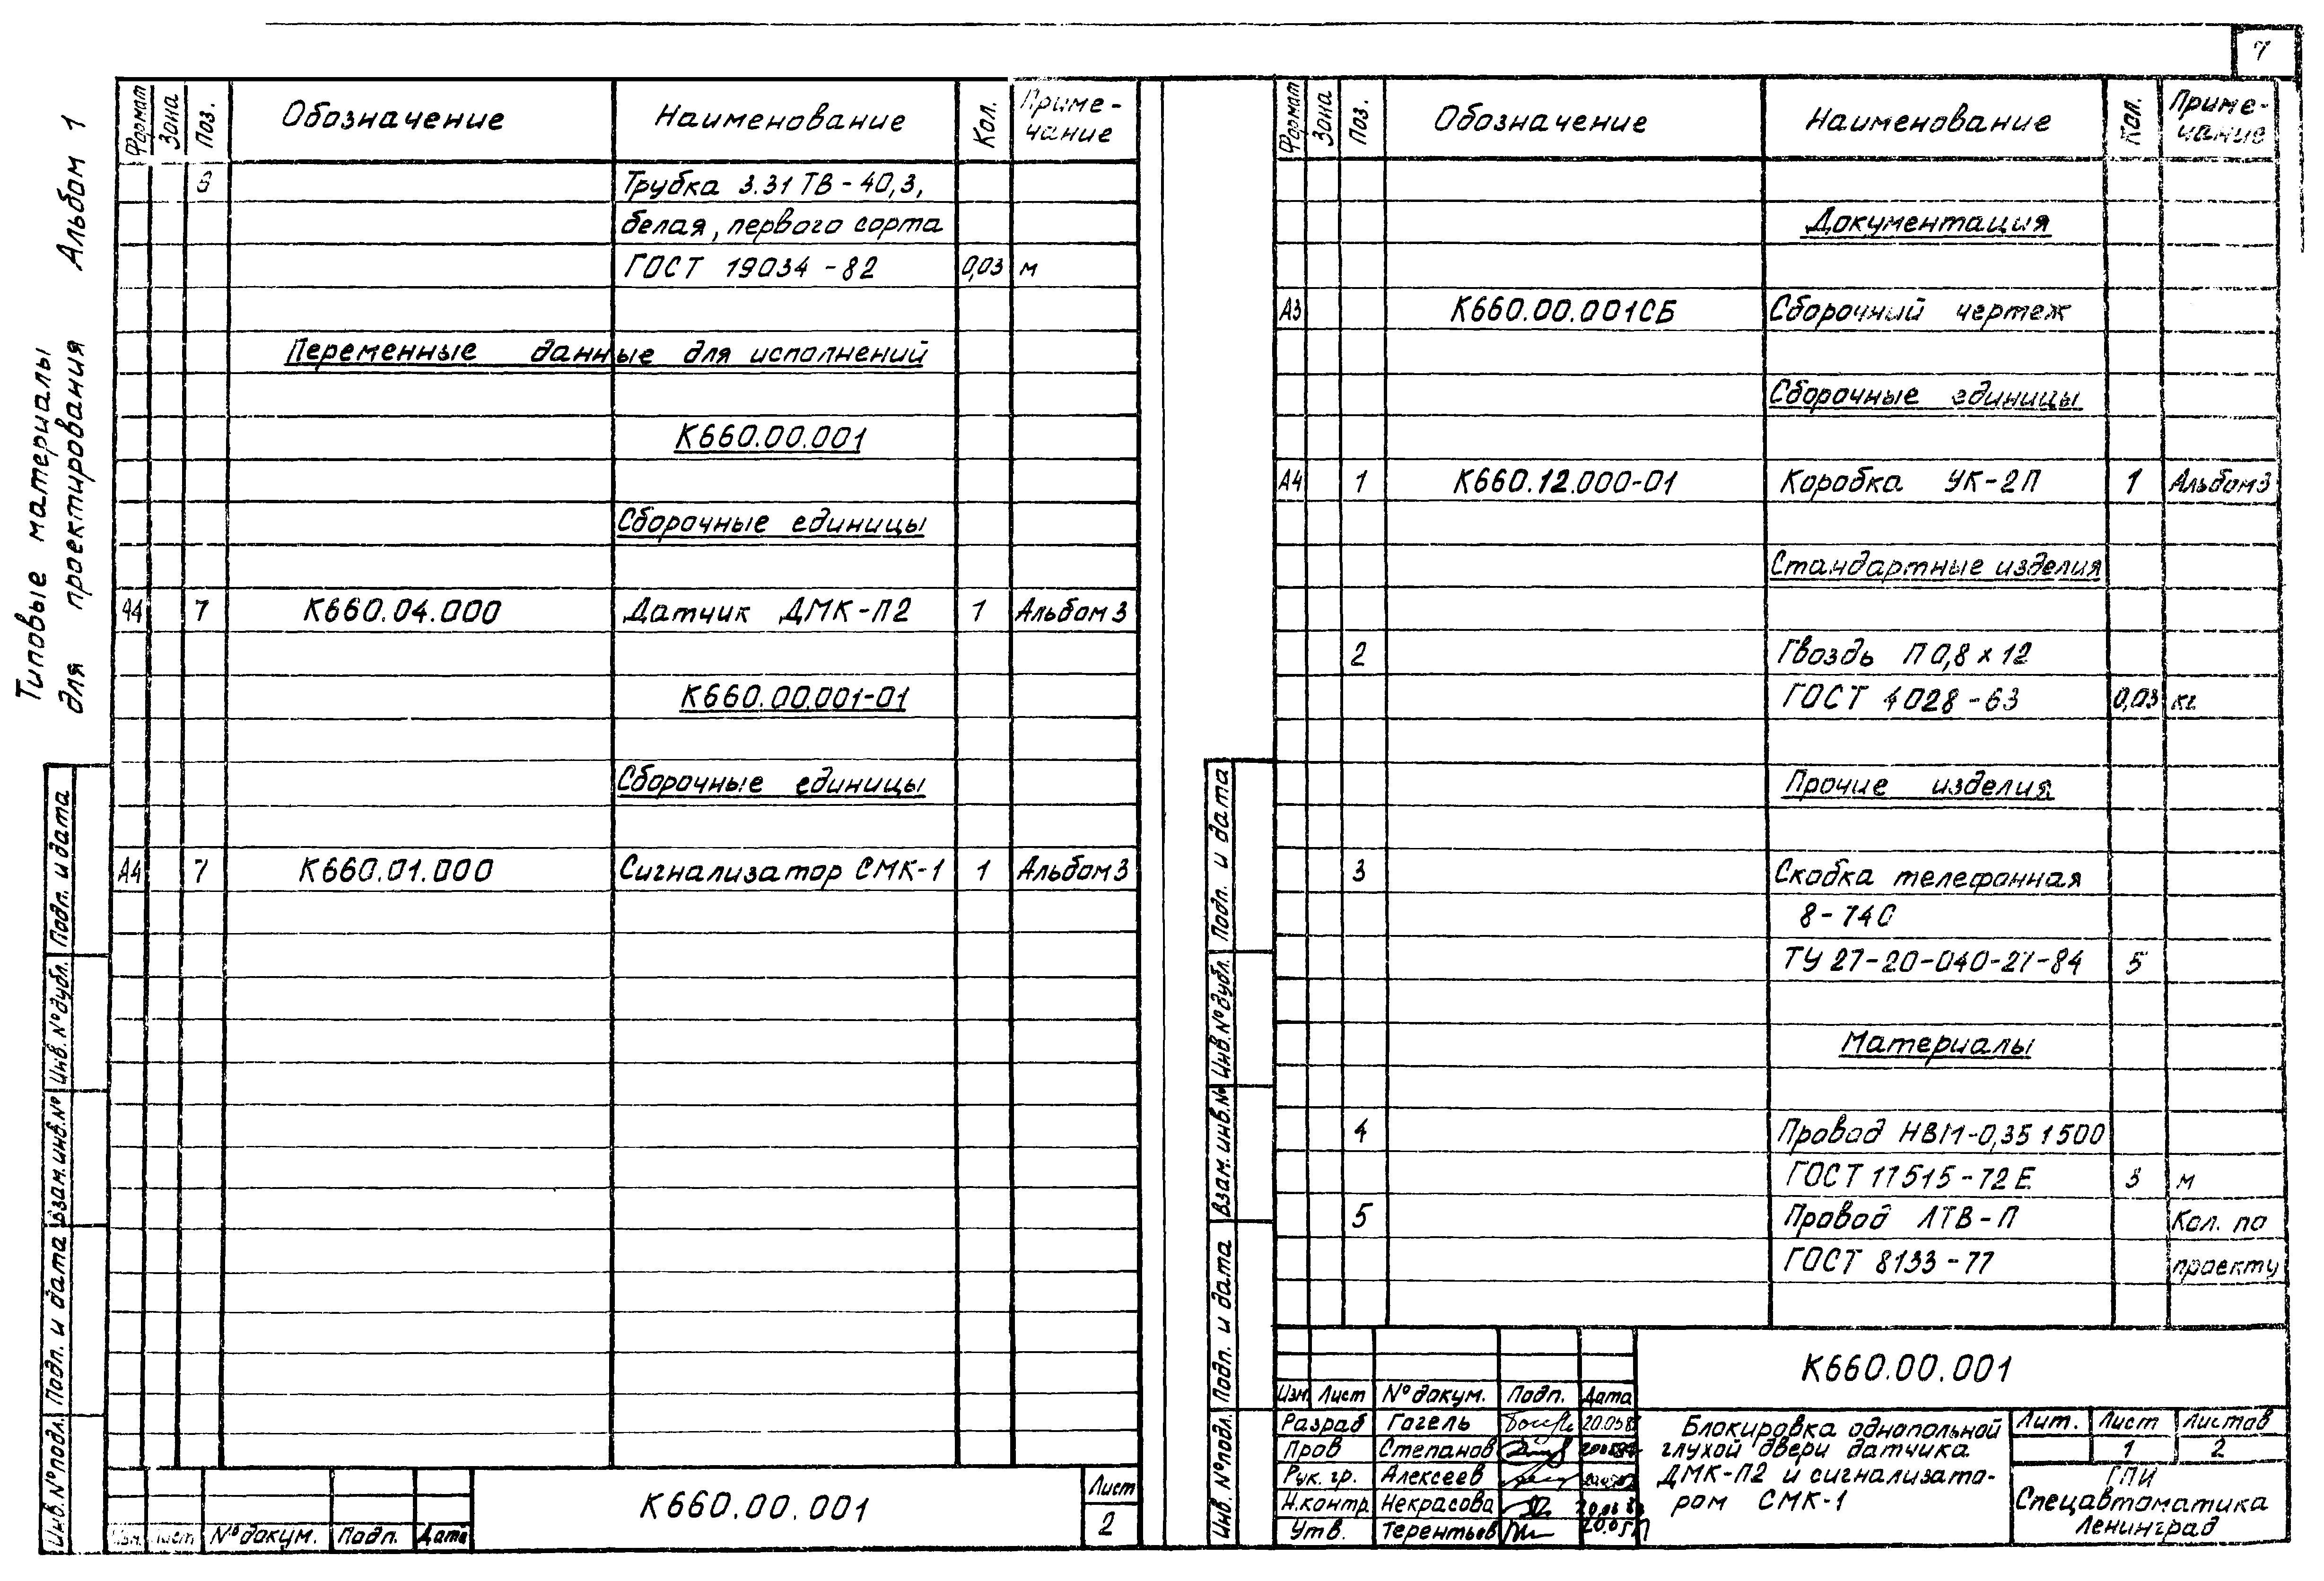 7
Типовые материалы
для проектирования Альбом 1
Формат Зона Поз. Обозначение Наименование Кол. Приме-
чание
6 Трубка 3.31 ТВ-40,3,
белая, первого сорта
ГОСТ 19034-82 0,03 м
Переменные данные для исполнений
К660.00.001
Сборочные единицы
А4 7 К660.04.000 Датчик ДМК-П2 1 Альбом 3
К660.00.001-01
Сборочные единицы
А4 7 К660.01.000 Сигнализатор СМК-1 1 Альбом 3
Инв. № подл. Подп. и дата Взам. инв. № Инв. № дубл. Подп. и дата
Изм. Лист № докум. Подп. Дата
К660.00.001
Лист
2
Формат Зона Поз. Обозначение Наименование Кол. Приме-
чание
Документация
А3 К660.00.001СБ Сборочный чертеж
Сборочные единицы
А4 1 К660.12.000-01 Коробка УК-2П 1 Альбом 3
Стандартные изделия
2 Гвоздь П 0,8 х 12
ГОСТ 4028-63 0,03 кг
Прочие изделия
3 Скобка телефонная
8-740
ТУ 27-20-040-27-84 5
Материалы
4 Провод НВМ-0,35 1 500
ГОСТ 17515-72 Е 3 м
5 Провод ЛТВ-П Кол. по
ГОСТ 8133-77 проекту
Инв. № подл. Подп. и дата Взам. инв. № Инв. № дубл. Подп. и дата
К660.00.001
Изм. Лист № докум. Подп. Дата
Разраб Гогель
Пров Степанов
Рук. гр. Алексеев
Н.контр Некрасова
Утв. Терентьев
Блокировка однопольной
глухой двери датчика
ДМК-П2 и сигнализато-
ром СМК-1
Лит. Лист Листов
1 2
ГПИ
Спецавтоматика
Ленинград